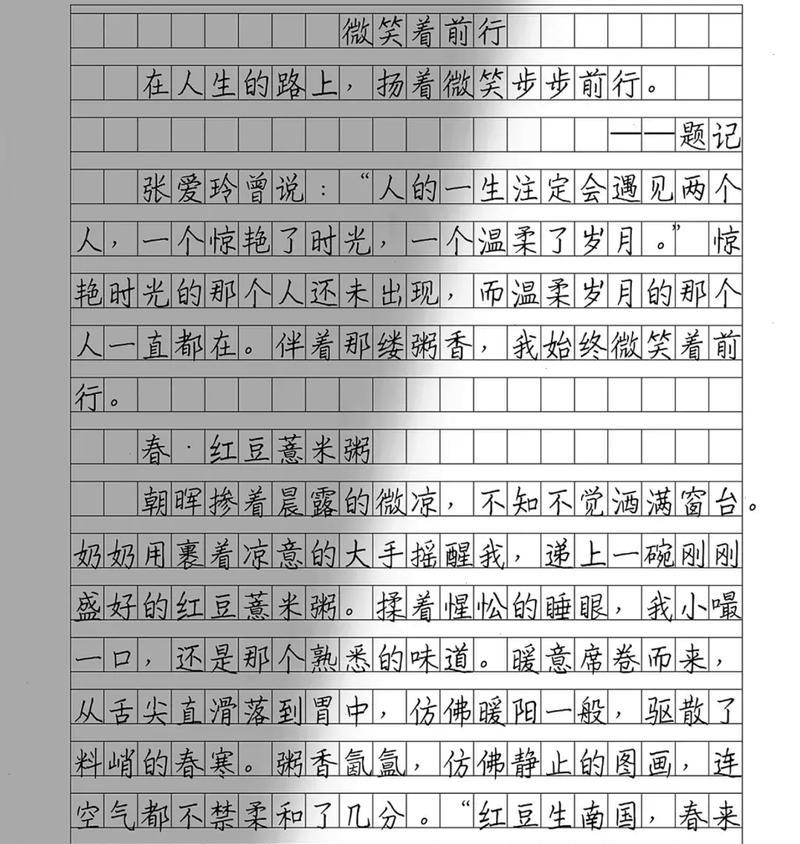 微笑着前行
在人生的路上，扬着微笑步步前行。
——题记
张爱玲曾说：“人的一生注定会遇见两个
人，一个惊艳了时光，一个温柔了岁月。”惊
艳时光的那个人还未出现，而温柔岁月的那个
人一直都在。伴着那缕粥香，我始终微笑着前
行。
春·红豆薏米粥
朝晖掺着晨露的微凉，不知不觉洒满窗台。
奶奶用裹着凉意的大手摇醒我，递上一碗刚刚
盛好的红豆薏米粥。揉着惺忪的睡眼，我小嘬
一口，还是那个熟悉的味道。暖意席卷而来，
从舌尖直滑落到胃中，仿佛暖阳一般，驱散了
料峭的春寒。粥香氤氲，仿佛静止的图画，连
空气都不禁柔和了几分。“红豆生南国，春来